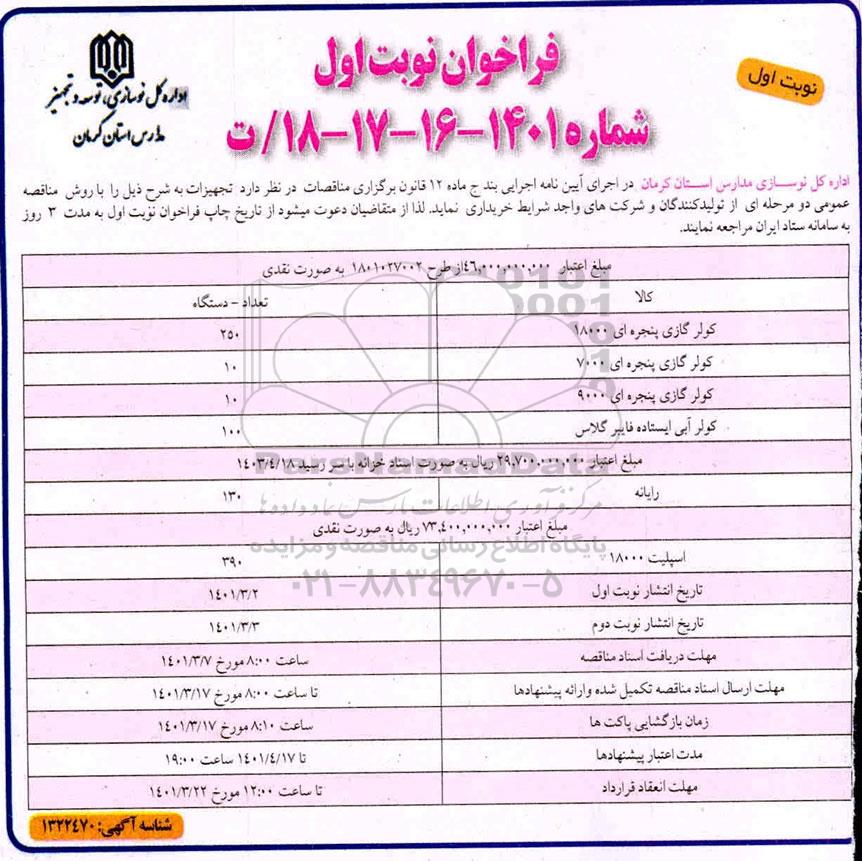 فراخوان نوبت اول
نوبت اول
اداره کل نوسازی، توسعه و تجهیز
مدارس استان کرمان
شماره ۱۴۰۱-۱۶-۱۷-۱۸/ت
اداره کل نوسـازی مدارس اسـتان کرمان در اجرای آیین نامه اجرایی بند ج ماده ۱۲ قانون برگزاری مناقصات در نظر دارد تجهیزات به شرح ذیل را با روش مناقصه
عمومی دو مرحله ای از تولیدکنندگان و شرکت های واجد شرایط خریداری نماید. لذا از متقاضیان دعوت میشود از تاریخ چاپ فراخوان نوبت اول به مدت ۳ روز
به سامانه ستاد ایران مراجعه نمایند.
مبلغ اعتبار ۴۶,۰۰۰,۰۰۰,۰۰۰از طرح ۱۸۰۱۰۲۷۰۰۲ به صورت نقدی
کالا تعداد - دستگاه
کولر گازی پنجره ای ۱۸۰۰۰ ۲۵۰
کولر گازی پنجره ای ۷۰۰۰ ۱۰
کولر گازی پنجره ای ۹۰۰۰ ۱۰
کولر آبی ایستاده فایبر گلاس ۱۰۰
مبلغ اعتبار ۲۹,۷۰۰,۰۰۰,۰۰۰ ریال به صورت اسناد خزانه با سر رسید ۱۴۰۳/۴/۱۸
ParsNamadData
رایانه ۱۳۰
مرکز فرآوری اطلاعات پارس نماد داده ها
مبلغ اعتبار ۷۳,۴۰۰,۰۰۰,۰۰۰ ریال به صورت نقدی
پایگاه اطلاع رسانی مناقصه و مزایده
اسپلیت ۱۸۰۰۰ ۳۹۰
۰۲۱-۸۸۳۴۹۶۷۰-۵
تاریخ انتشار نوبت اول ۱۴۰۱/۳/۲
تاریخ انتشار نوبت دوم ۱۴۰۱/۳/۳
مهلت دریافت اسناد مناقصه ساعت ۸:۰۰مورخ ۱۴۰۱/۳/۷
مهلت ارسال اسناد مناقصه تکمیل شده وارائه پیشنهادها تا ساعت ۸:۰۰ مورخ ۱۴۰۱/۳/۱۷
زمان بازگشایی پاکت ها ساعت ۸:۱۰ مورخ ۱۴۰۱/۳/۱۷
مدت اعتبار پیشنهادها تا ۱۴۰۱/۴/۱۷ ساعت ۱۹:۰۰
مهلت انعقاد قرارداد تا ساعت ۱۲:۰۰ مورخ ۱۴۰۱/۳/۲۲
شناسه آگهی: ۱۳۲۲۴۷۰